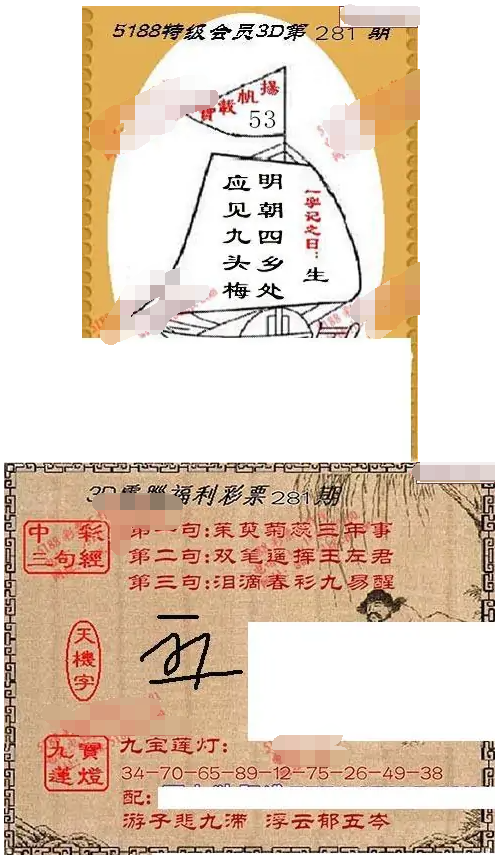 5188特级会员3D第281期
揚帆載寶
53
一字记之曰：生
明朝四乡处
应见九头梅
3D電腦福利彩票281期
中彩三句經
第一句:茱萸菊蕊三年事
第二句:双笔遥挥王左君
第三句:泪滴春衫九易醒
天機字
九寶蓮燈
九宝莲灯:
34-70-65-89-12-75-26-49-38
配:
游子悲九滞 浮云郁五岑